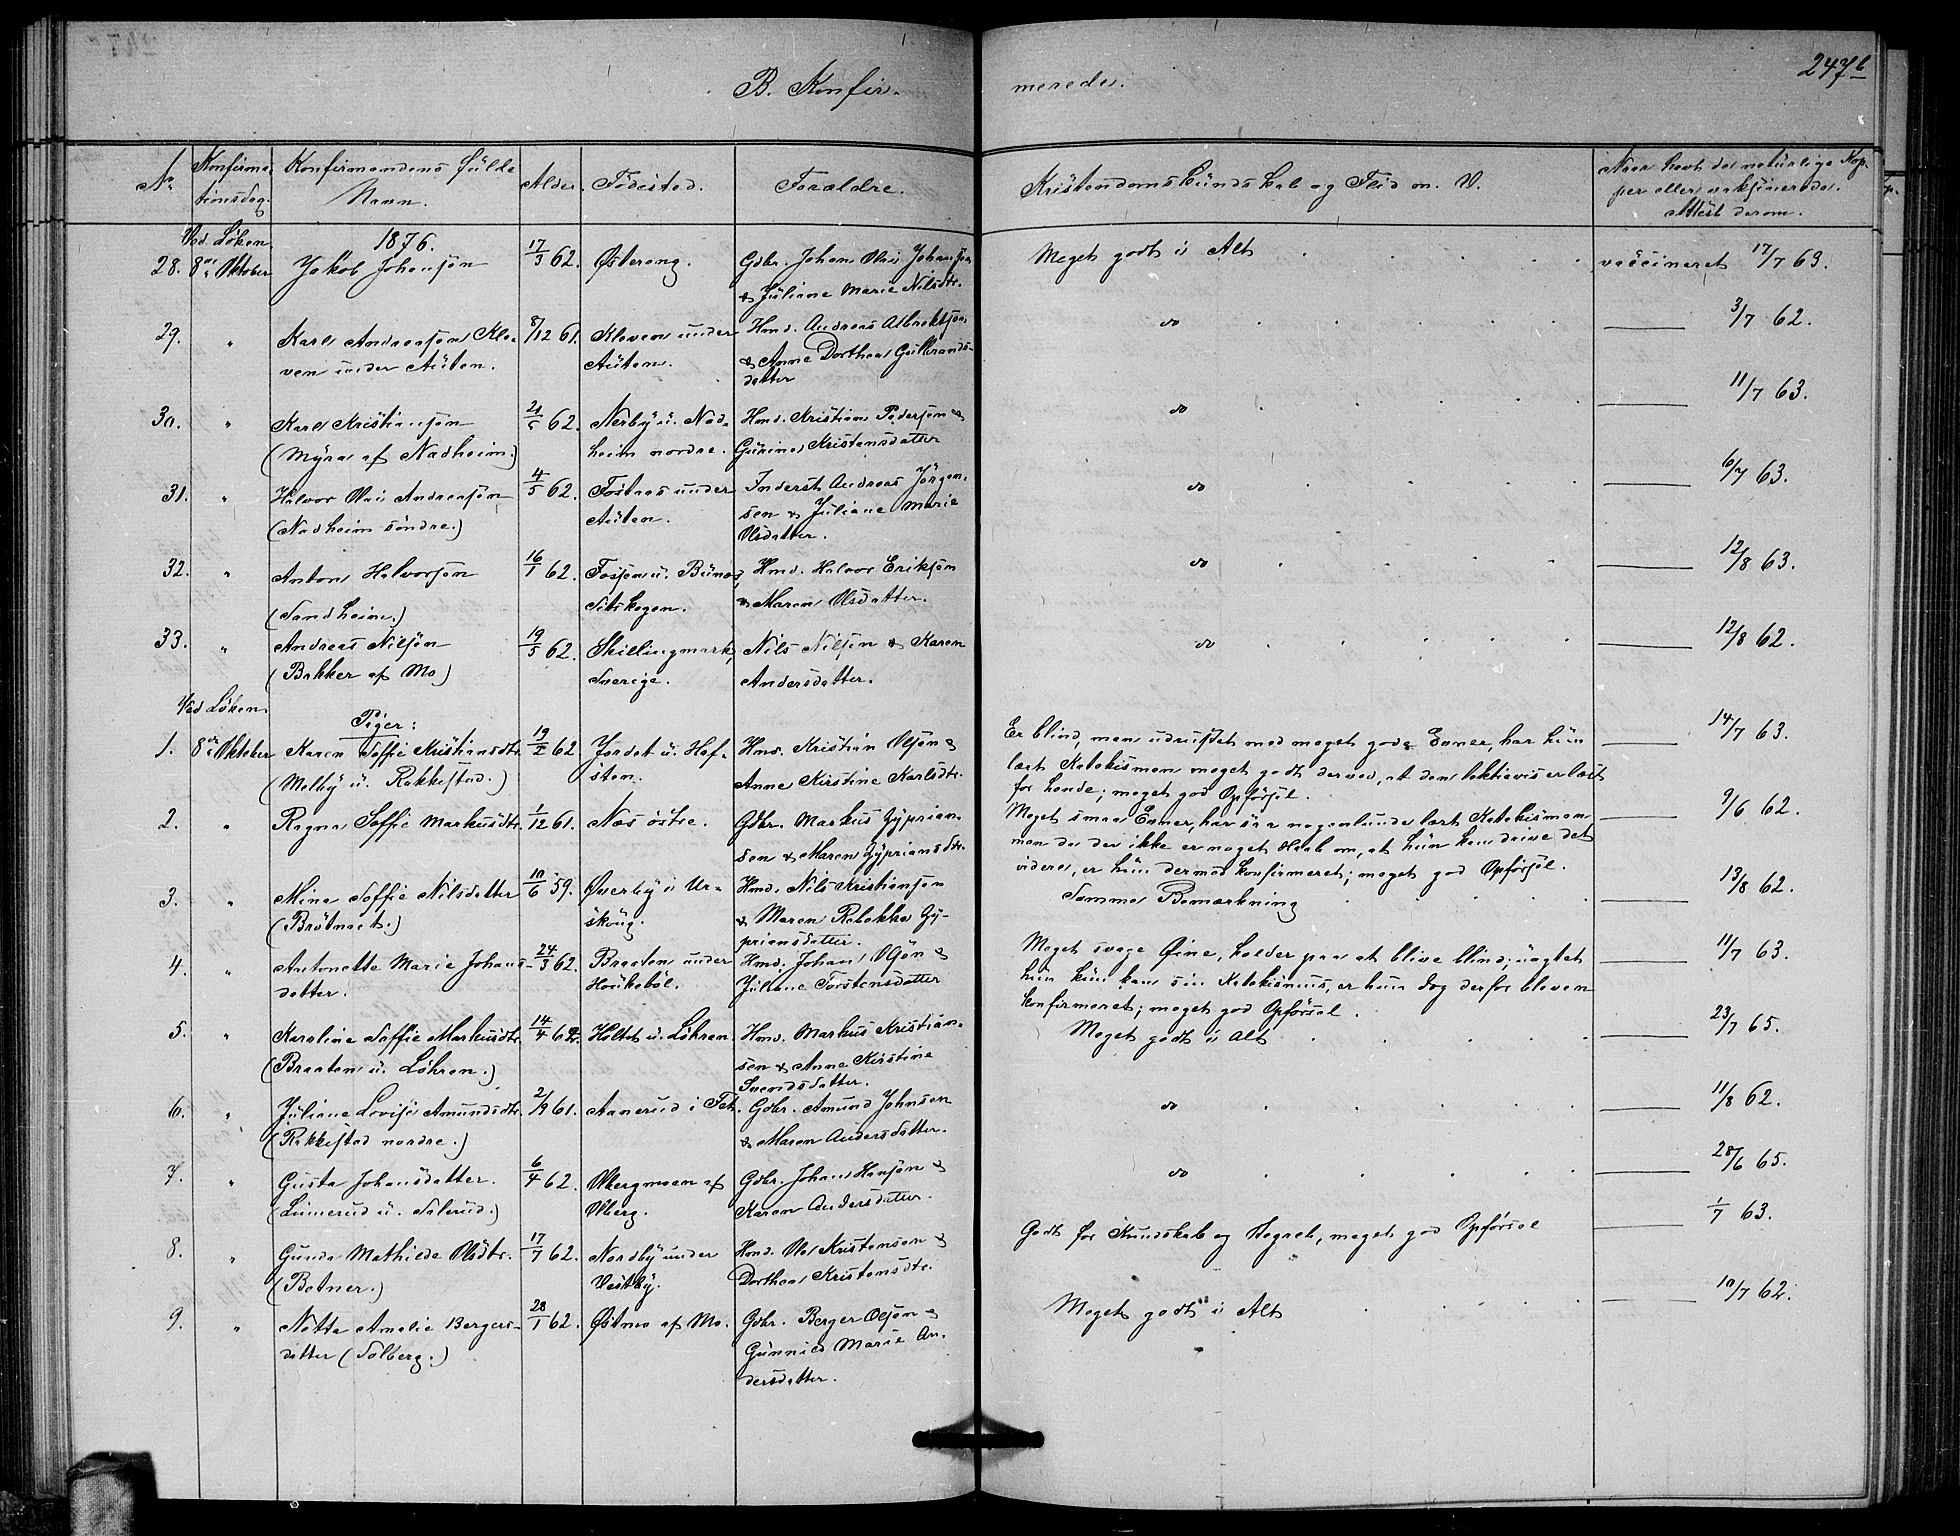 247b
B. Konfirmerede.
No. Konfirmationsdag. Konfirmandens fulde Navn. Alder. Födested. Forældre. Kristendomskundskab og Flid m. V. Naar havt de naturlige Kopper eller vaksinerede. Attest derom.
Ved Løken 1876.
28. 8de Oktober Jakob Johansen 17/3 62. Østereng. Gdbr. Johan Olai Johansen & Juliane Marie Nilsdtr. Meget godt i Alt vaccineret 17/7 63.
29. " Karl Andreasen Kloven under Auten. 8/12 61. Kloven under Auten. Hmd. Andreas Albrektsen & Anne Dorthea Gulbrandsdatter do 3/7 62.
30. " Karl Kristiansen (Myra af Nadheim.) 62. Nerby u. Nadheim nordre. Hmd. Kristian Pedersen & Gurine Kristensdatter do 11/7 63.
31. " Halvor Olai Andreasen (Nadheim søndre.) 4/5 62. Fosnes under Auten. Inderst Andreas Jörgensen & Juliane Marie Olsdatter. do 6/7 63.
32. " Anton Halvorsen (Sandheim.) 16/1 62. Fossen u. Bunes, Setskogen. Hmd. Halvor Eriksen & Maren Olsdatter. do 12/8 63.
33. " Andreas Nilsen (Bakker af Mo) 19/5 62. Skillingmark, Sverige. Nils Nilsen & Karen Andersdatter. do 12/8 62.
Ved Løken Piger:
1. 8de Oktober Karen Soffie Kristiansdtr. (Melby u. Rakkestad.) 19/2 62 Jordet u. Hafsten. Hmd. Kristian Olsen & Anne Kirstine Karlsdtr. Er blind, men udrustet med meget gode Evner, har hun lært Katekismen meget godt derved, at den lektievis er læst for hende; meget god Opførsel. 14/7 63.
2. " Ragna Soffie Markusdtr. 1/12 61. Nes östre. Gdbr. Markus Zypriansen & Maren Zypriansdtr. Meget smaa Evner, har saa nogenlunde lært Katekismen, men da der ikke er noget Haab om, at hun kan drive det videre, er hun dermed konfirmeret; meget god Opførsel. 9/6 62.
3. " Mina Soffie Nilsdatter (Brøtnæt.) 10/6 59. Øverby i Urskoug. Hmd. Nils Kristiansen & Maren Rebekka Zypriansdatter. Samme Bemærkning 13/8 62.
4. " Antonette Marie Johansdatter. 24/3 62. Braaten under Houkeböl. Hmd. Johan Olsen & Juliane Torstensdatter Meget svage Øine, holder paa at blive blind; uagtet hun kun kan sin Katekismus, er hun dog derfor bleven konfirmeret; meget god Opførsel. 11/7 63.
5. " Karoline Soffie Markusdtr. (Braaten u. Löhren.) 14/4 62. Holtet u. Löhren. Hmd. Markus Kristiansen & Anne Kirstine Svendsdatter. Meget godt i Alt 23/7 65.
6. " Juliane Lovise Amundsdtr. (Rakkestad nordre.) 2/9 61. Aanerud i Fet. Gdbr. Amund Johnsen & Maren Andersdatter. do 11/8 62.
7. " Gusta Johansdatter. (Lunerud u. Solerud.) 6/4 62. Olbergmoen af Olberg. Gdbr. Johan Hansen & Karen Andersdatter. do 28/6 65.
8. " Gunda Mathilde Olsdtr. (Botner.) 17/7 62. Nordby under Vestby. Hmd. Ole Kristensen & Dorthea Kristensdtr. Godt for Kundskab og Begreb, meget god Opførsel 1/7 63.
9. " Netta Amalie Bergersdatter (Solberg.) 28/1 62. Østmo af Mo. Gdbr. Berger Olsen & Gunnild Marie Andersdatter. Meget godt i Alt 10/7 62.